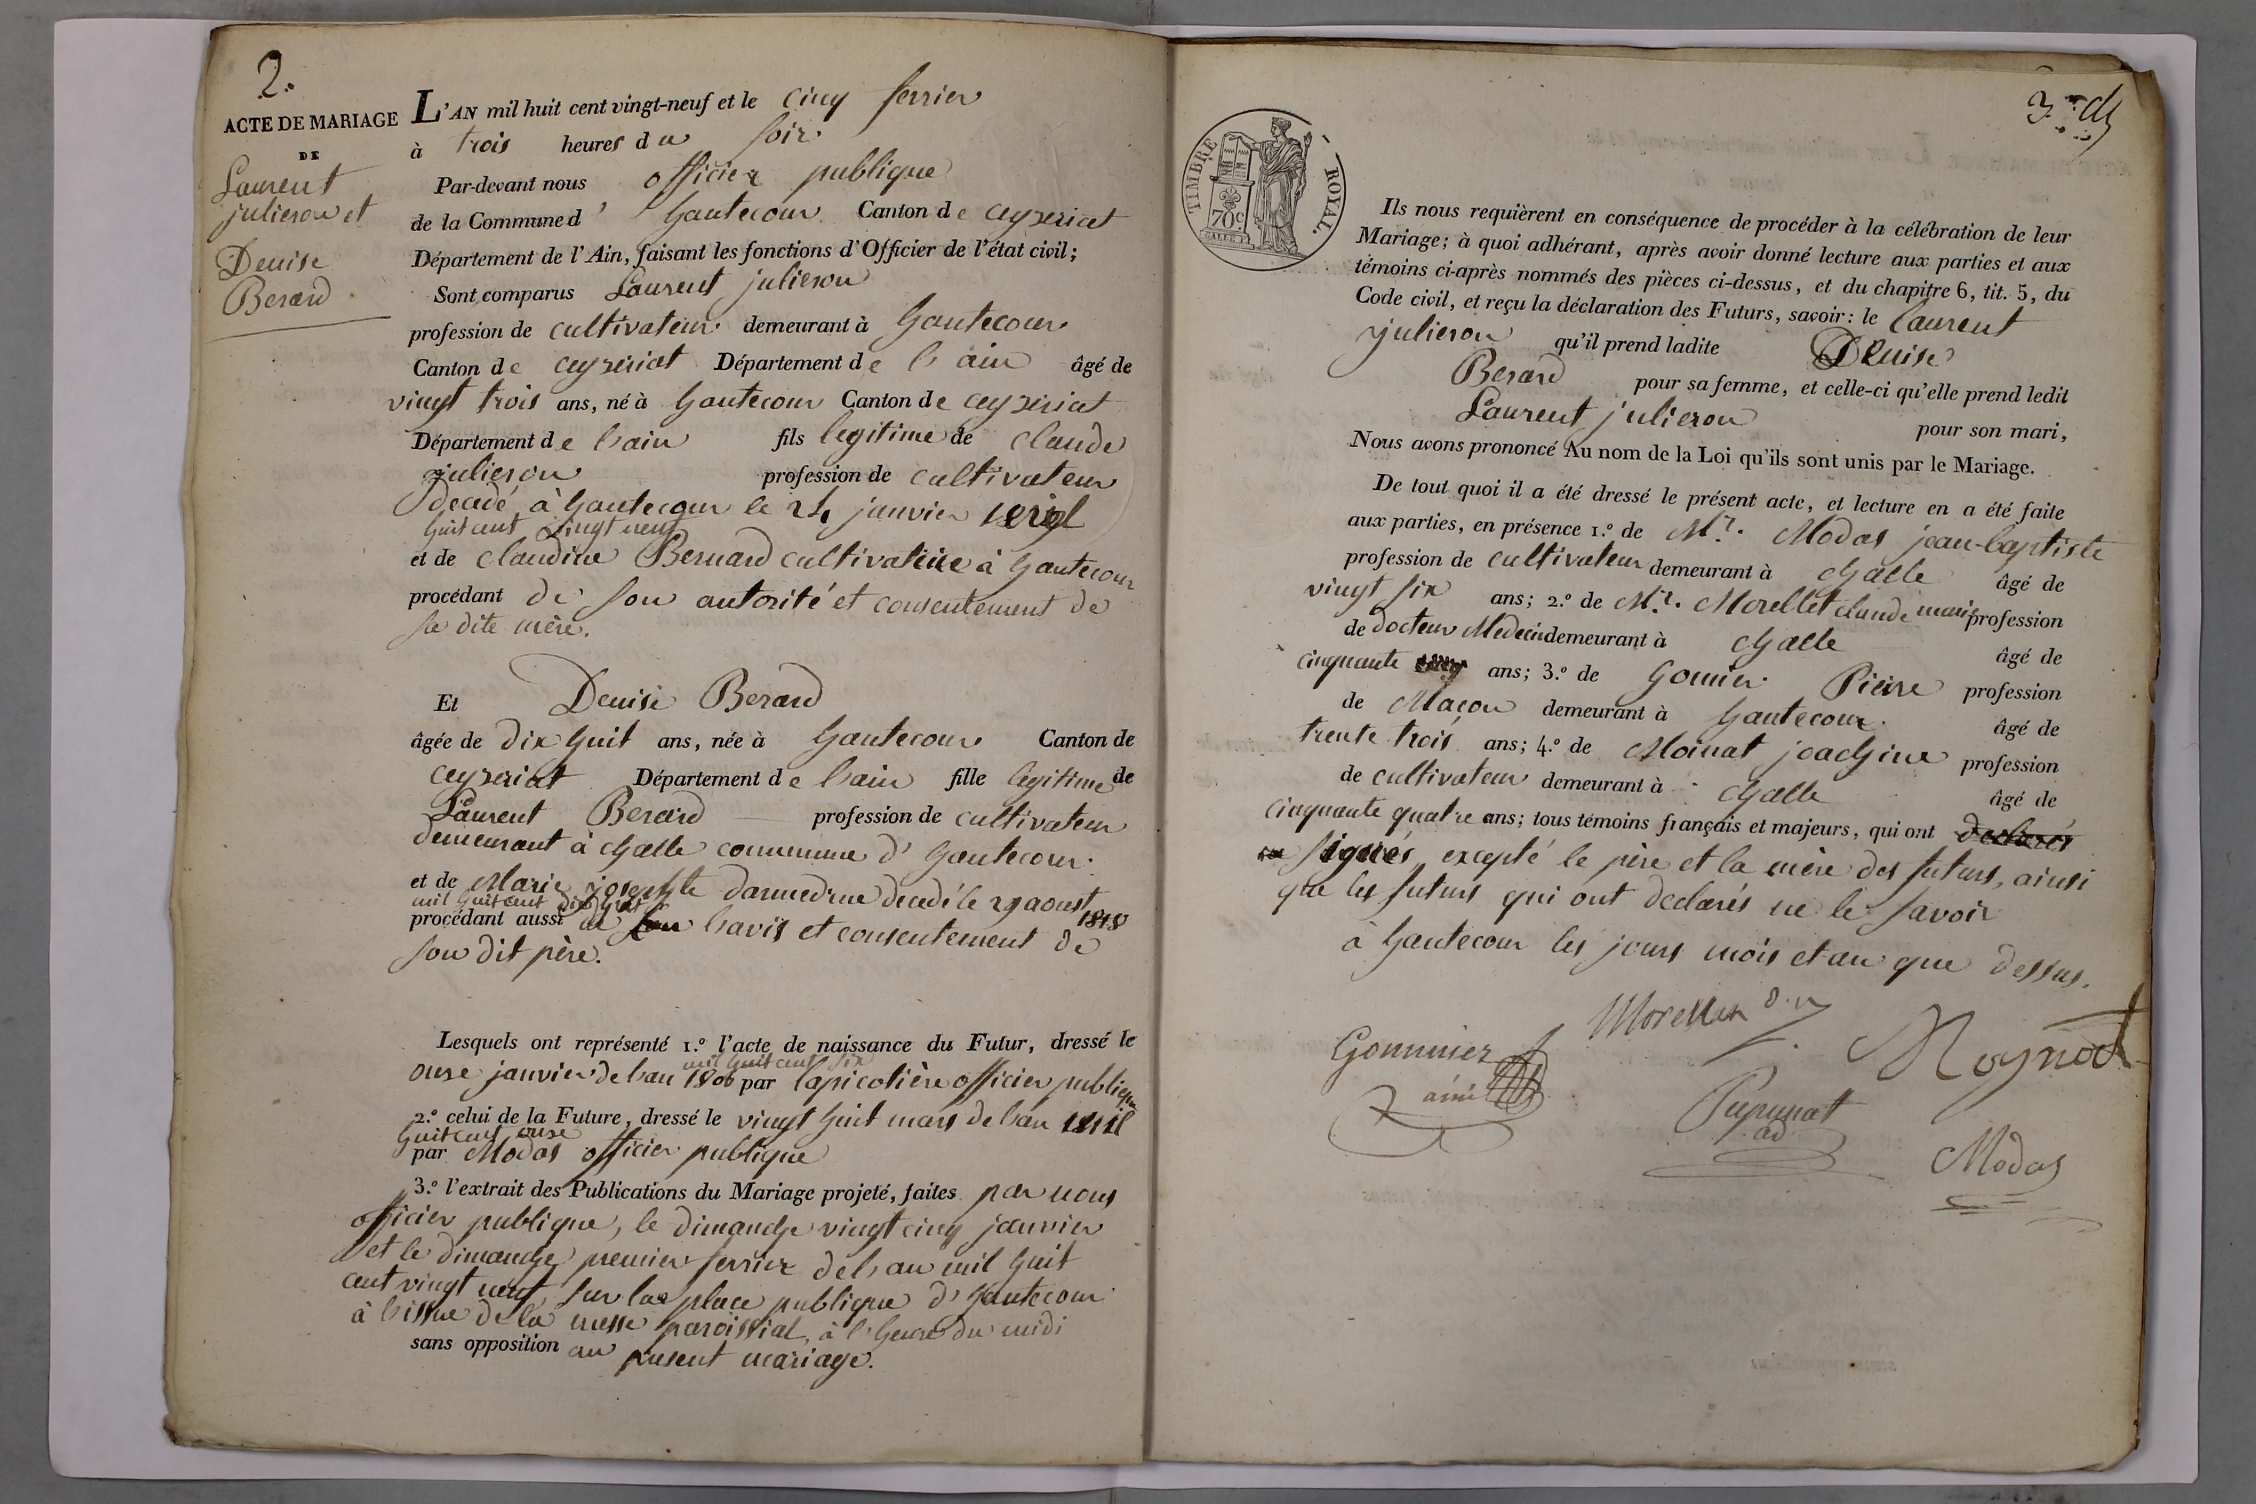 2.
ACTE DE MARIAGE
DE
Laurent
julieron et
Denise
Berard
L'AN mil huit cent vingt-neuf et le cinq fevrier
à trois heures du soir
Par-devant nous officier publique
de la Commune d' hautecour Canton de ceyzeriat
Département de l'Ain, faisant les fonctions d'Officier de l'état civil;
Sont comparus Laurent julieron
profession de cultivateur demeurant à hautecour
Canton de ceyzeriat Département de l'ain âgé de
vingt trois ans, né à hautecour Canton de ceyzeriat
Département de l'ain fils legitime de claude
julieron profession de cultivateur
decedé à hautecour le 24 janvier mil
huit cent vingt neuf
et de claudine Bernard cultivatrice à hautecour
procédant de son autorité et consentement de
sa dite mère.
Et Denise Berard
âgée de dix huit ans, née à hautecour Canton de
ceyzeriat Département de l'ain fille legitime de
Laurent Berard profession de cultivateur
demeurant à challe commune d' hautecour
et de Marie josephte decedé le 29 aoust
mil huit cent dix huit 1818
procédant aussi de l'avis et consentement de
son dit père.
Lesquels ont représenté 1.º l'acte de naissance du Futur, dressé le
mil huit cent six
onze janvier de l'an 1806 par lapicotière officier publique
2.º celui de la Future, dressé le vingt huit mars de l'an mil
huit cent onze
par Modas officier publique
3.º l'extrait des Publications du Mariage projeté, faites par nous
officier publique, le dimanche vingt cinq janvier
et le dimanche premier fevrier de l'an mil huit
cent vingt neuf, sur la place publique d' hautecour
à l'issue de la messe paroissial, à l'heure du midi
sans opposition au present mariage.
3.
TIMBRE ROYAL.
70 c
Ils nous requièrent en conséquence de procéder à la célébration de leur
Mariage; à quoi adhérant, après avoir donné lecture aux parties et aux
témoins ci-après nommés des pièces ci-dessus, et du chapitre 6, tit. 5, du
Code civil, et reçu la déclaration des Futurs, savoir: le Laurent
julieron qu'il prend ladite Denise
Berard pour sa femme, et celle-ci qu'elle prend ledit
Laurent julieron pour son mari,
Nous avons prononcé Au nom de la Loi qu'ils sont unis par le Mariage.
De tout quoi il a été dressé le présent acte, et lecture en a été faite
aux parties, en présence 1.º de Mr. Modas jean-baptiste
profession de cultivateur demeurant à challe âgé de
vingt six ans; 2.º de Mr. Morellet claude marie profession
de docteur Medecin demeurant à challe âgé de
cinquante cinq ans; 3.º de Gomier Pierre profession
de Maçon demeurant à hautecour âgé de
trente trois ans; 4.º de Moinat joachim profession
de cultivateur demeurant à challe âgé de
cinquante quatre ans; tous témoins français et majeurs, qui ont declarés
signés, excepté le père et la mère des futurs, ainsi
que les futurs qui ont declarés ne le savoir
à hautecour les jours mois et an que dessus.
Morellet d. m
Gommier
ainé
Moynat
ad
Modas